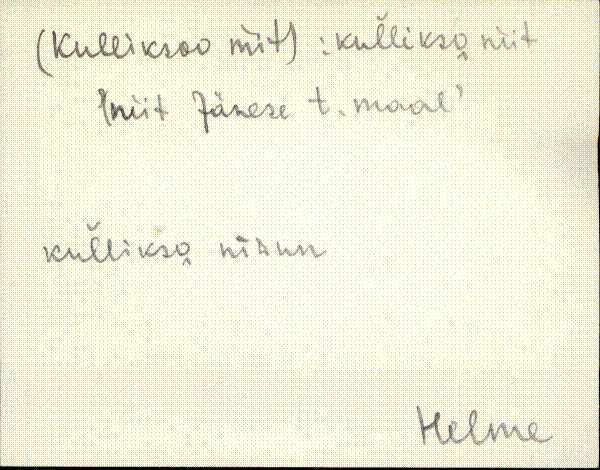 (Kulliksoo niit) : kul̆likso̭ niit
'niit Jänese t. maal'
kul̆likso̭
Helme